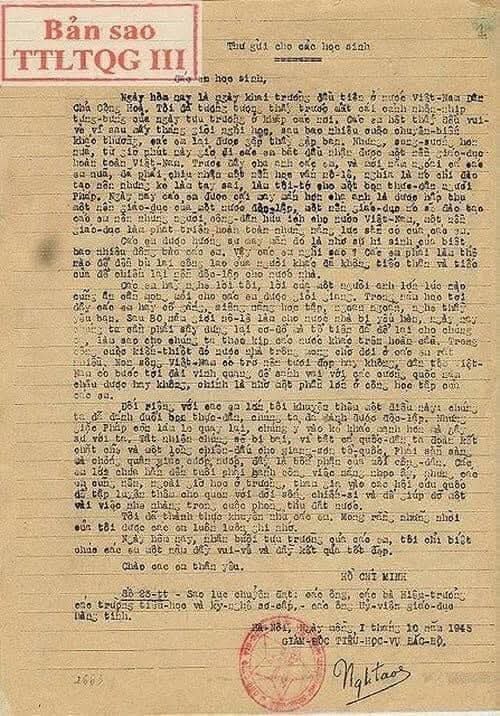 Bản sao
TTLTQG III
Thư gửi cho các học sinh
Các em học sinh,
Ngày hôm nay là ngày khai trường đầu tiên ở nước Việt-Nam Dân
Chủ Cộng Hoà. Tôi đã tưởng tượng thấy trước mắt cái cảnh nhộn-nhịp
tưng-bừng của ngày tựu trường ở khắp các nơi. Các em hết thảy đều vui-
vẻ vì sau mấy tháng giời nghỉ học, sau bao nhiêu cuộc chuyển-biến
khác thường, các em lại được gặp thầy gặp bạn. Nhưng, sung-sướng hơn
nữa, từ giờ phút này giở đi các em bắt đầu nhận được một nền giáo-dục
hoàn toàn Việt-Nam. Trước đây cha anh các em, và mới năm ngoái cả các
em nữa, đã phải chịu nhận một nền học vấn nô-lệ, nghĩa là nó chỉ đào
tạo nên những kẻ làm tay sai, làm tôi-tớ cho một bọn thực-dân người
Pháp. Ngày nay các em được cái may mắn hơn cha anh là được hấp thụ
một nền giáo-dục của một nước độc-lập, một nền giáo-dục nó sẽ đào tạo
các em nên những người công-dân hữu ích cho nước Việt-Nam, một nền
giáo-dục làm phát triển hoàn toàn những năng lực sẵn có của các em.
Các em được hưởng sự may mắn đó là nhờ sự hi sinh của biết
bao nhiêu đồng bào các em. Vậy các em nghĩ sao ? Các em phải làm thế
nào để đền bù lại công lao của người khác đã không tiếc thân và tiếc
của để chiếm lại nền độc-lập cho nước nhà.
Các em hãy nghe lời tôi, lời của một người anh lớn lúc nào
cũng ân cần mong mỏi cho các em được giỏi giang. Trong năm học tới
đây các em hãy cố gắng, siêng năng học tập, ngoan ngoãn, nghe thầy
yêu bạn. Sau 80 năm giời nô-lệ làm cho nước nhà bị yếu hèn, ngày nay
chúng ta cần phải xây dựng lại cơ-đồ mà tổ tiên đã để lại cho chúng
ta, làm sao cho chúng ta theo kịp các nước khác trên hoàn cầu. Trong
công cuộc kiến-thiết đó nước nhà trông mong chờ đợi ở các em rất
nhiều. Non sông Việt-Nam có trở nên tươi đẹp hay không, dân tộc Việt-
Nam có bước tới đài vinh quang để sánh vai với các cường quốc năm
châu được hay không, chính là nhờ một phần lớn ở công học tập của
các em.
Đối riêng với các em lớn tôi khuyên thêm một điều này: chúng
ta đã đánh đuổi bọn thực-dân, chúng ta đã dành được độc-lập. Nhưng
giặc Pháp còn lăm le quay lại, chúng ỷ vào kẻ khác mạnh hơn mà gây
sự với ta. Tất nhiên chúng sẽ bị bại, vì tất cả quốc-dân ta đoàn kết
chặt chẽ và một lòng chiến-đấu cho giang-sơn tổ-quốc. Phải sẵn sàng
mà chống quân giặc cướp nước, đấy là bổn phận của mỗi công-dân. Các
em lớn chưa hẳn đến tuổi phải gánh công việc nặng nhọc ấy, nhưng các
em cũng nên, ngoài giờ học ở trường, tham gia vào các hội cứu quốc
để tập luyện thêm cho quen với đời sống chiến-sĩ và để giúp đỡ một
vài việc nhẹ nhàng trong cuộc phòng thủ đất nước.
Tôi đã thành thực khuyên nhủ các em. Mong rằng những nhời
của tôi được các em luôn luôn ghi nhớ.
Ngày hôm nay, nhân buổi tựu trường của các em, tôi chỉ biết
chúc các em một năm đầy vui-vẻ và đầy kết quả tốt đẹp.
Chào các em thân yêu.
HỒ CHÍ MINH
Số 23-tt - Sao lục chuyển đạt: các ông, các bà Hiệu-trưởng
các trường tiểu-học và kỹ-nghệ sơ-cấp, - các ông Uỷ-viên giáo-dục
hàng tỉnh.
Hà-Nội, Ngày mồng 1 tháng 10 năm 1945
GIÁM-ĐỐC TIỂU-HỌC-VỤ BẮC-BỘ,
2663